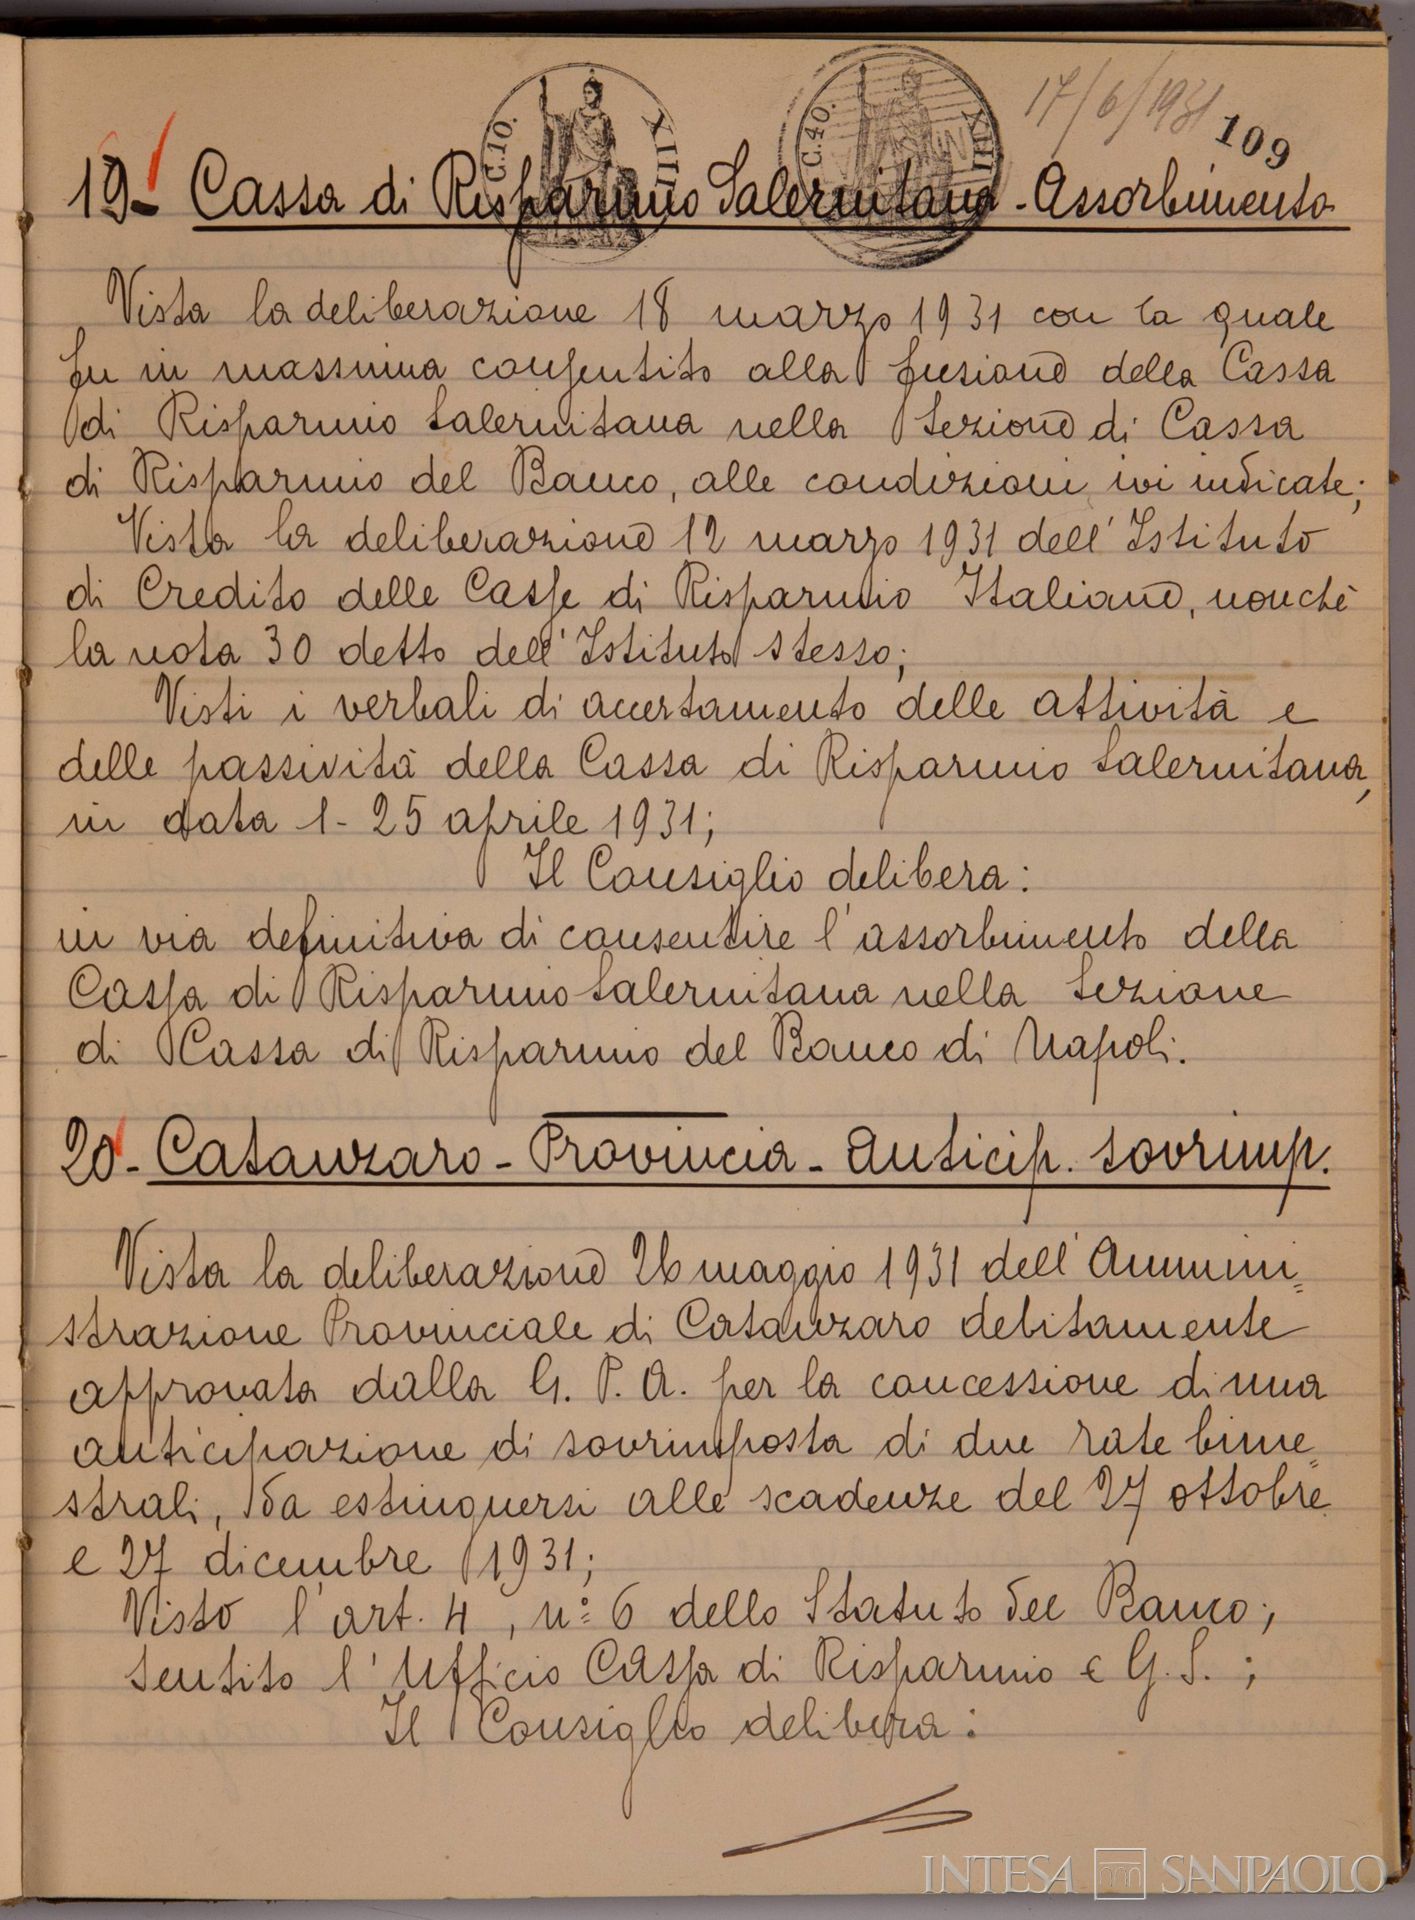 C. 10.
XIII
C. 40.
XIII
17/6/1931
109
19 - Cassa di Risparmio Salernitana - Assorbimento
Vista la deliberazione 18 marzo 1931 con la quale
fu in massima consentito alla fusione della Cassa
di Risparmio Salernitana nella Sezione di Cassa
di Risparmio del Banco, alle condizioni ivi indicate;
Vista la deliberazione 12 marzo 1931 dell'Istituto
di Credito delle Casse di Risparmio Italiane, nonchè
la nota 30 detto dell'Istituto stesso;
Visti i verbali di accertamento delle attività e
delle passività della Cassa di Risparmio Salernitana,
in data 1 - 25 aprile 1931;
Il Consiglio delibera:
in via definitiva di consentire l'assorbimento della
Cassa di Risparmio Salernitana nella Sezione
di Cassa di Risparmio del Banco di Napoli.
20 - Catanzaro - Provincia - Anticip. sovrimp.
Vista la deliberazione 26 maggio 1931 dell'Ammini=
strazione Provinciale di Catanzaro debitamente
approvata dalla G. P. A. per la concessione di una
anticipazione di sovrimposta di due rate bime=
strali, da estinguersi alle scadenze del 27 ottobre
e 27 dicembre 1931;
Visto l'art. 4, n° 6 dello Statuto del Banco;
Sentito l'Ufficio Cassa di Risparmio e G. S.;
Il Consiglio delibera:
INTESA SANPAOLO